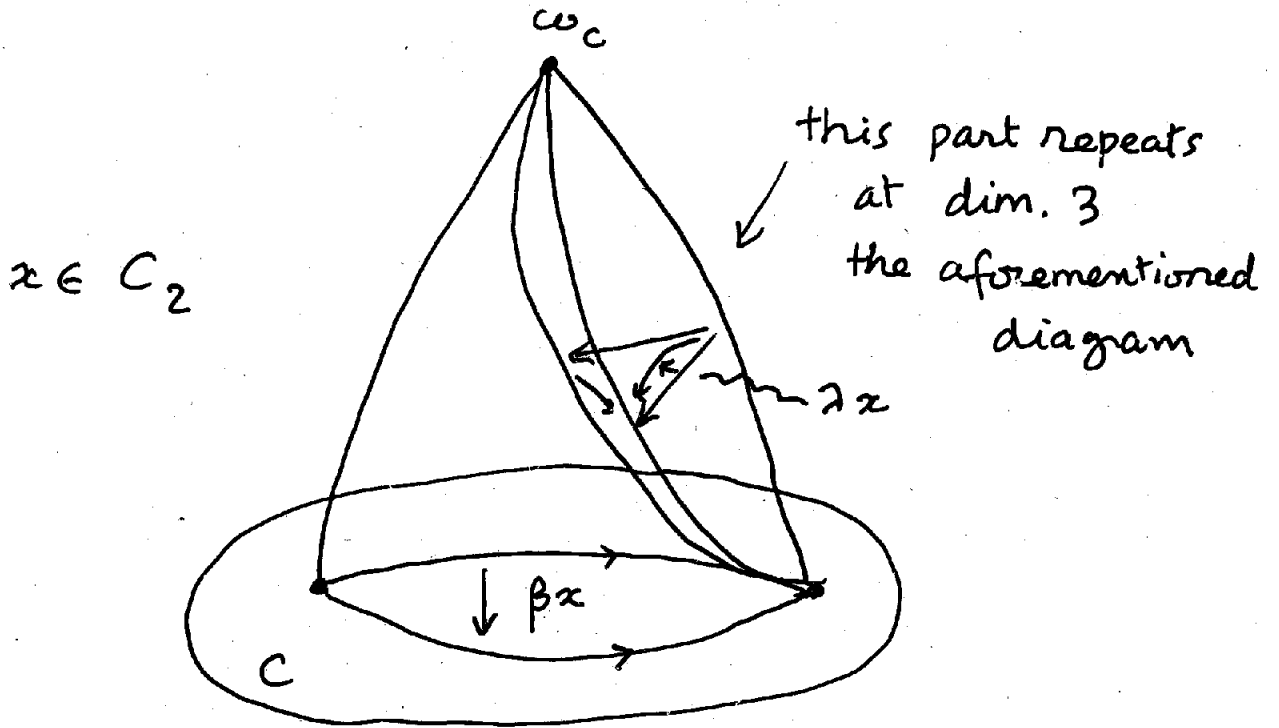 ω_c
this part repeats
at dim. 3
the aforementioned
diagram
x ∈ C_2
λx
βx
C